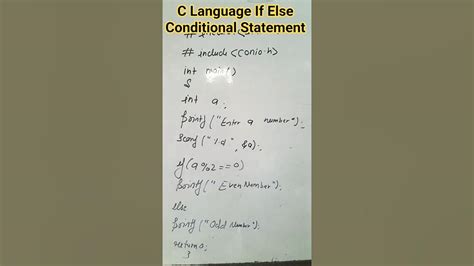 C Language If Else
Conditional Statement
# include
# include <conio.h>
int main()
{
int a;
printf ("Enter a number");
scanf ("%d", &a);
if (a%2==0)
printf (" Even Number");
else
printf ("Odd Number");
return 0;
}